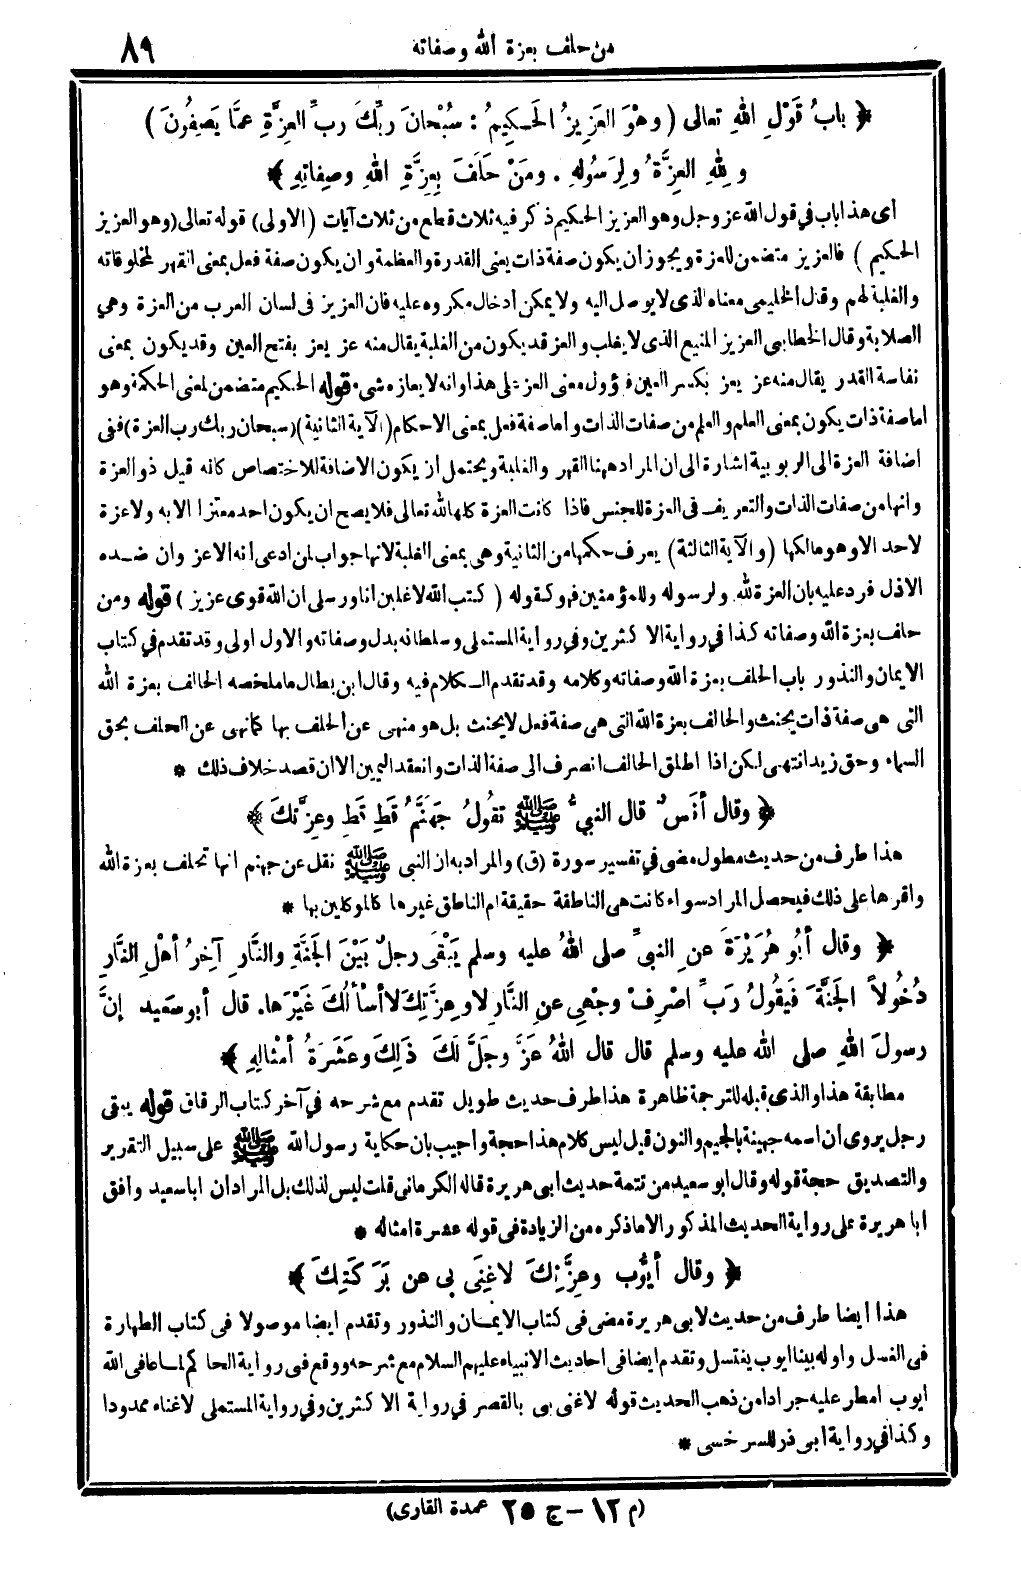 من حلف بعزة الله وصفاته ٨٩
﴿ بابُ قَوْلِ اللهِ تعالى ( وهْوَ العَزِيزُ الحَكِيمُ : سُبْحانَ رَبِّكَ رَبِّ العِزَّةِ عمَّا يَصِفُونَ )
وللهِ العِزَّةُ ولِرَسُولِهِ . ومَنْ حَلَفَ بِعِزَّةِ اللهِ وصِفاتِهِ ﴾
أى هذا باب في قول الله عز وجل وهو العزيز الحكيم ذكر فيه ثلاث قطع من ثلاث آيات (الاولى) قوله تعالى (وهو العزيز
الحكيم ) فالعزيز متضمن للعزة ويجوز أن يكون صفة ذات يعنى القدرة والعظمة وان يكون صفة فعل بمعنى القهر لمخلوقاته
والغلبة لهم وقال الحليمى معناه الذى لا يوصل اليه ولا يمكن أدخال مكروه عليه فان العزيز فى لسان العرب من العزة وهي
الصلابة وقال الخطابى العزيز المنيع الذى لا يغلب والعز قد يكون من الغلبة يقال منه عز يعز بفتح العين وقد يكون بمعنى
نفاسة القدر يقال منه عز يعز بكسر العين فيؤول معنى العز على هذا وانه لا يعازه شىء قوله الحكيم متضمن لمعنى الحكمة وهو
اما صفة ذات يكون بمعنى العلم والعلم من صفات الذات واما صفة فعل بمعنى الاحكام (الآية الثانية) (سبحان ربك رب العزة) ففى
اضافة العزة الى الربوبية اشارة الى ان المراد ههنا القهر والغلبة ويحتمل ان يكون الاضافة للاختصاص كانه قيل ذو العزة
وانها من صفات الذات والتعريف فى العزة للجنس فاذا كانت العزة كلها لله تعالى فلا يصح ان يكون احد معتزا الا به ولا عزة
لاحد الا وهو مالكها (والآية الثالثة) يعرف حكمها من الثانية وهى بمعنى الغلبة لانها جواب لمن ادعى انه الاعز وان ضده
الاذل فرد عليه بان العزة لله ولرسوله وللمؤمنين فهو كقوله ( كتب الله لاغلبن انا ورسلى ان الله قوى عزيز ) قوله ومن
حلف بعزة الله وصفاته كذا في رواية الاكثرين وفي رواية المستملى وسلطانه بدل وصفاته والاول اولى وقد تقدم في كتاب
الايمان والنذور باب الحلف بعزة الله وصفاته وكلامه وقد تقدم الكلام فيه وقال ابن بطال ما ملخصه الحالف بعزة الله
التى هى صفة ذات يحنث والحالف بعزة الله التى هى صفة فعل لا يحنث بل هو منهى عن الحلف بها كما نهى عن الحلف بحق
السماء وحق زيد انتهى لكن اذا اطلق الحالف انصرف الى صفة الذات وانعقد اليمين الا ان قصد خلاف ذلك *
﴿ وقال أنَسٌ قال النبيُّ ﷺ تَقُولُ جَهَنَّمُ قَطِ قَطِ وعِزَّتِكَ ﴾
هذا طرف من حديث مطول مضى في تفسير سورة (ق) والمراد به ان النبى ﷺ نقل عن جهنم انها تحلف بعزة الله
واقرها على ذلك فيحصل المراد سواء كانت هى الناطقة حقيقة ام الناطق غيرها كالموكلين بها *
﴿ وقال أبُو هُرَيْرَةَ عنِ النبيِّ صلى اللهُ عليه وسلم يَبْقَى رجلٌ بَيْنَ الجَنَّةِ والنَّارِ آخِرُ أهْلِ النَّارِ
دُخُولاً الجَنَّةَ فَيَقُولُ رَبِّ اصْرِفْ وجْهِى عنِ النَّارِ لا وعِزَّتِكَ لا أسْأَلُكَ غَيْرَها. قال أبو سَعِيد إنَّ
رسولَ اللهِ صلى الله عليه وسلم قال قال اللهُ عَزَّ وجَلَّ لَكَ ذَلِكَ وعَشَرَةُ أمْثالِهِ ﴾
مطابقة هذا والذى قبله للترجمة ظاهرة هذا طرف حديث طويل تقدم مع شرحه في آخر كتاب الرقاق قوله يبقى
رجل يروى ان اسمه جهينة بالجيم والنون قيل ليس كلام هذا حجة واجيب بان حكاية رسول الله ﷺ على سبيل التقرير
والتصديق حجة قوله وقال ابو سعيد من تتمة حديث ابى هريرة قاله الكرمانى قلت ليس لذلك بل المراد ان ابا سعيد وافق
ابا هريرة على رواية الحديث المذكور الا ما ذكره من الزيادة فى قوله عشرة امثاله *
﴿ وقال أيُّوب وعِزَّتِكَ لا غِنَى بِى عن بَرَكَتِكَ ﴾
هذا ايضا طرف من حديث لابى هريرة مضى فى كتاب الايمان والنذور وتقدم ايضا موصولا فى كتاب الطهارة
فى الغسل واوله بينا ايوب يغتسل وتقدم ايضا فى احاديث الانبياء عليهم السلام مع شرحه ووقع فى رواية الحاكم لما عافى الله
ايوب امطر عليه جرادا من ذهب الحديث قوله لا غنى بى بالقصر في رواية الاكثرين وفي رواية المستملى لا غناء ممدودا
وكذا في رواية ابى ذر للسرخسى *
(م ١٢ - ج ٢٥ عمدة القارى)